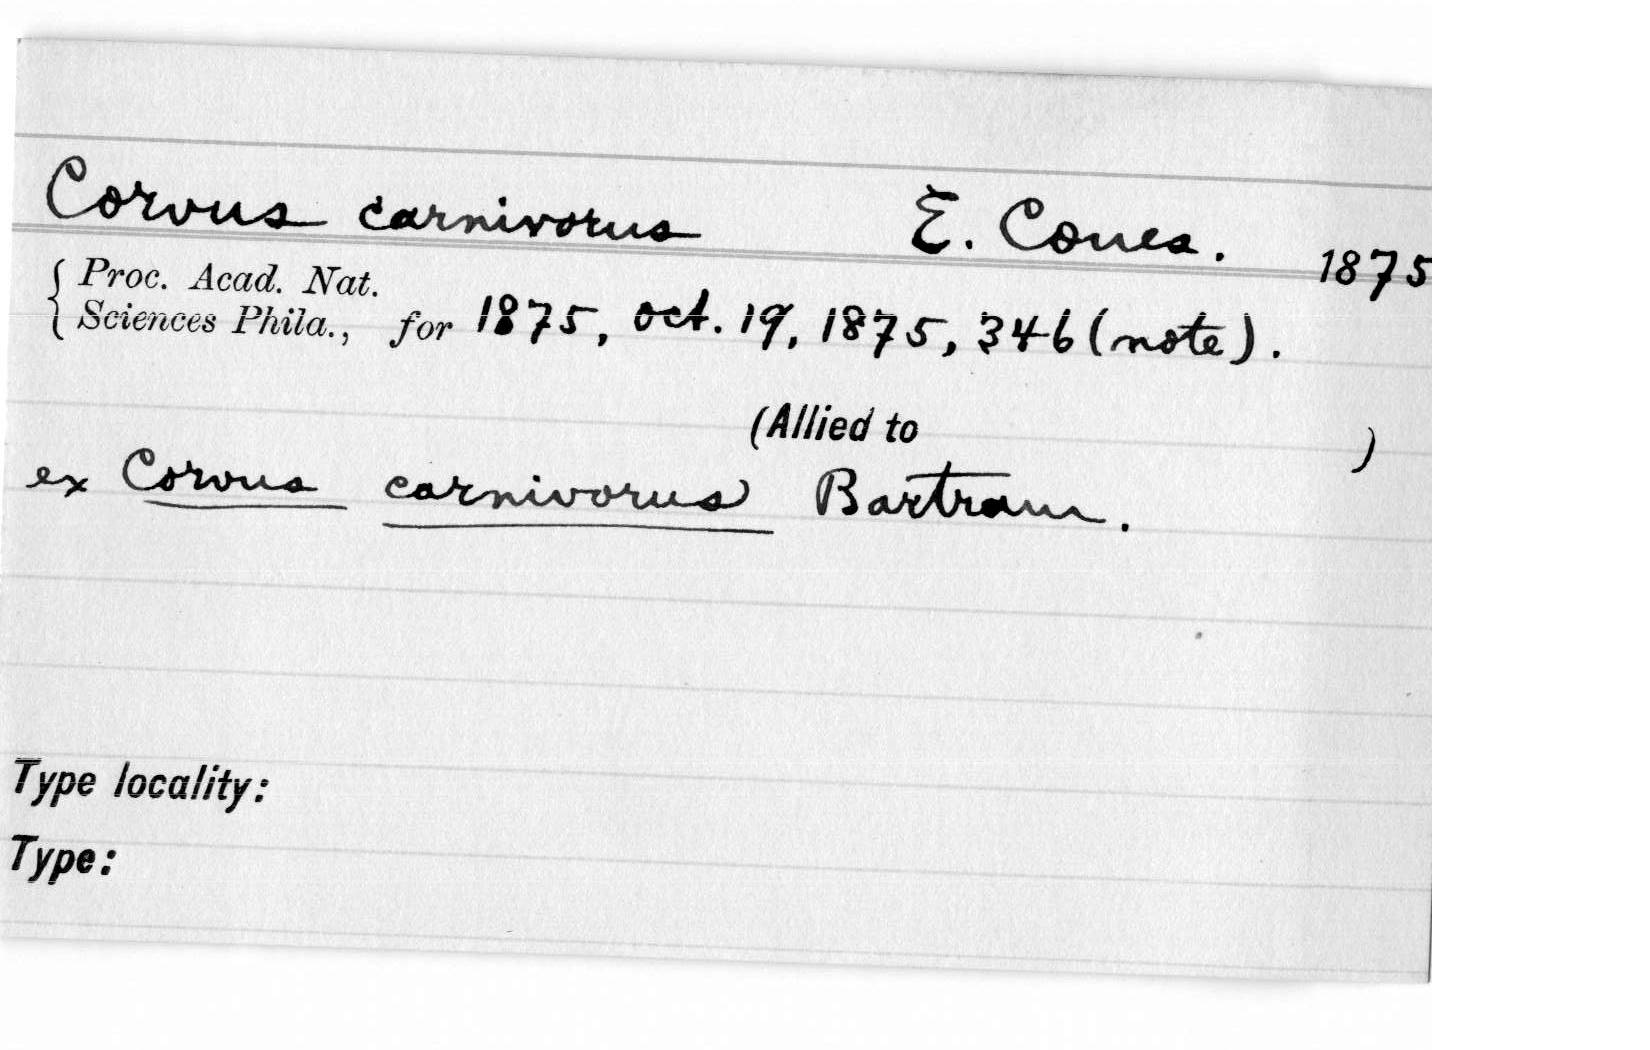 Corvus carnivorus E. Coues. 1875
Proc. Acad. Nat.
Sciences Phila., for 1875, oct. 19, 1875, 346 (note).
(Allied to )
ex Corvus carnivorus Bartram.
Type locality:
Type: